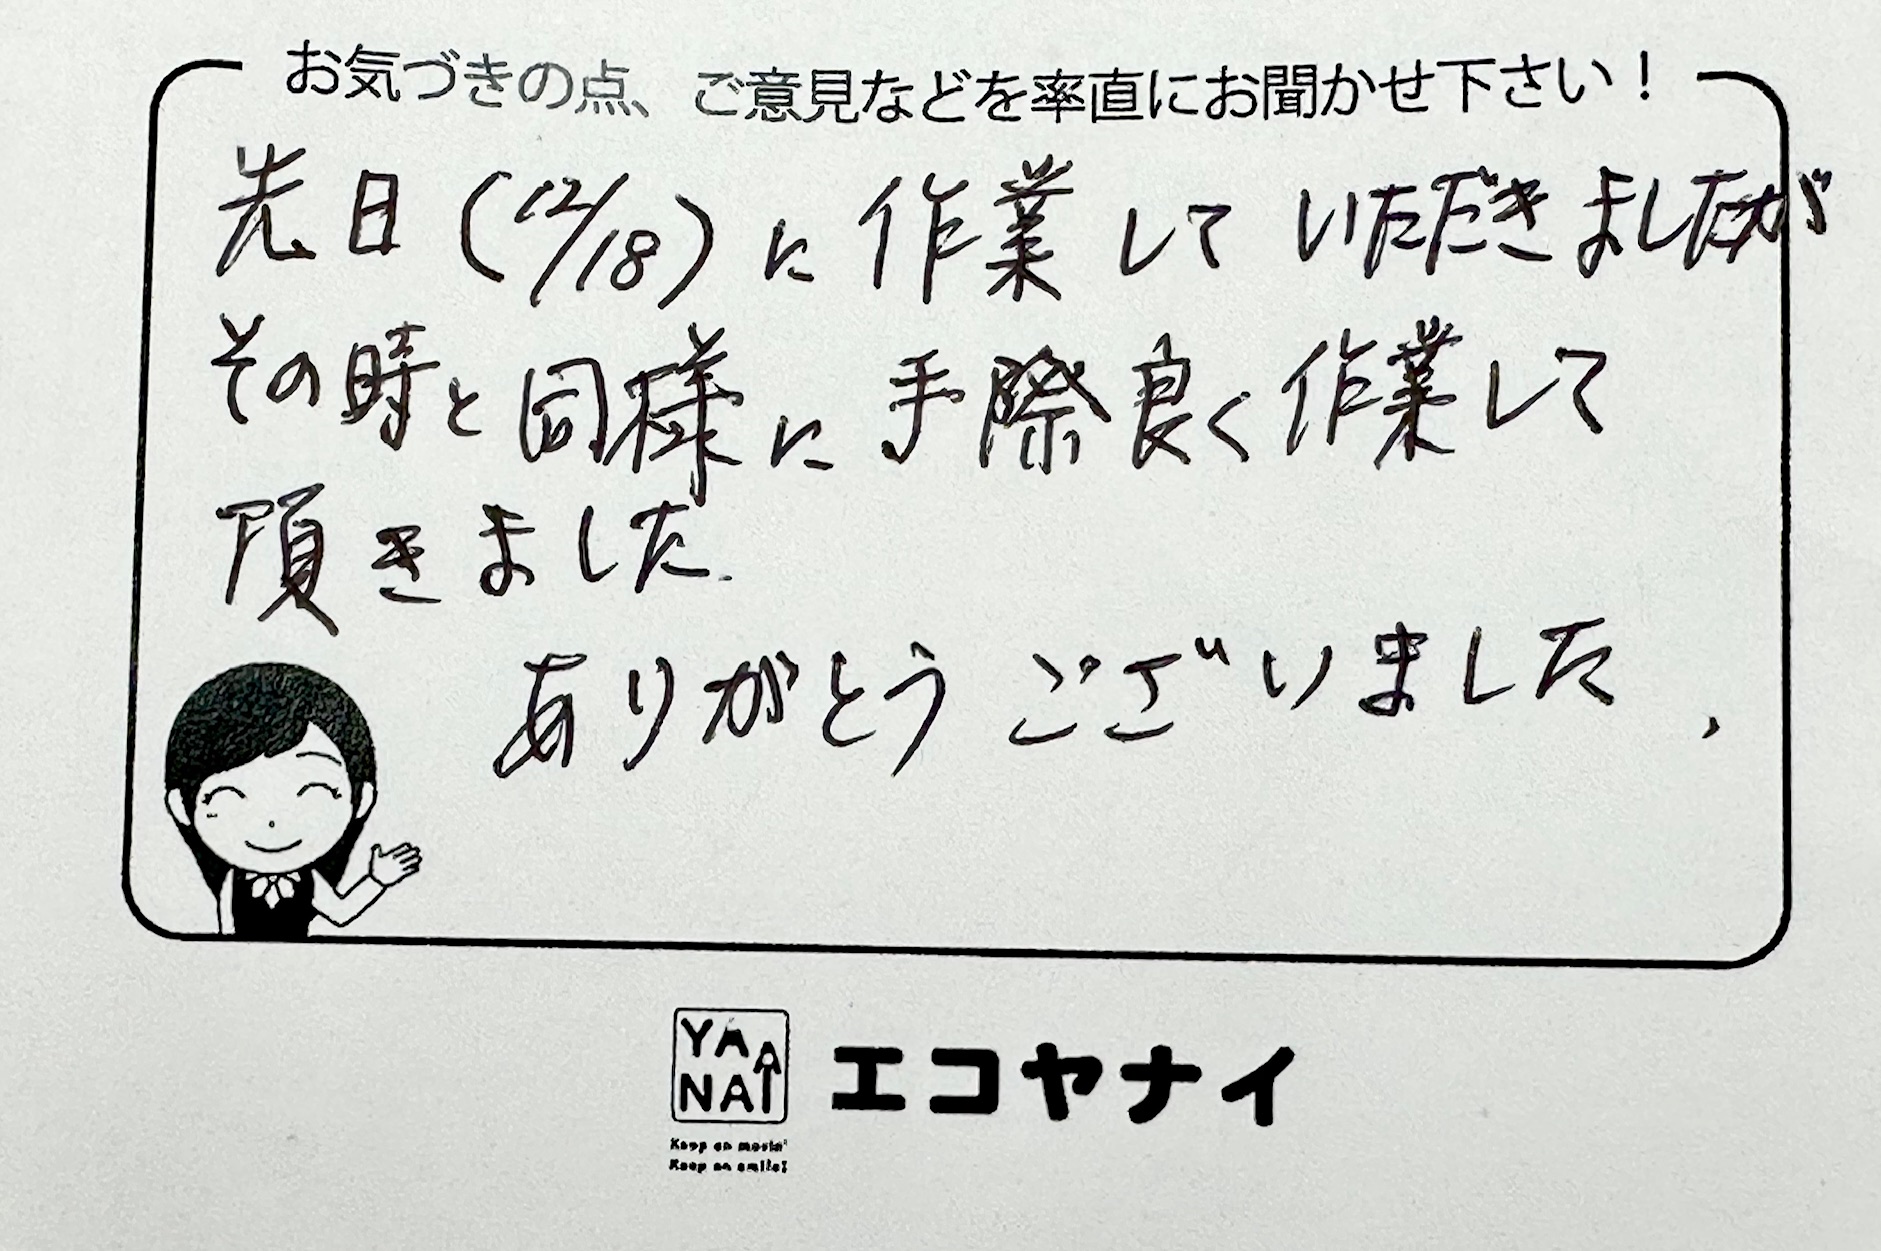 お気づきの点、ご意見などを率直にお聞かせ下さい！
先日(12/18)に作業していただきましたが
その時と同様に手際良く作業して
頂きました.
ありがとうございました、
YANAI
エコヤナイ
Keep on movin'
Keep on smile!